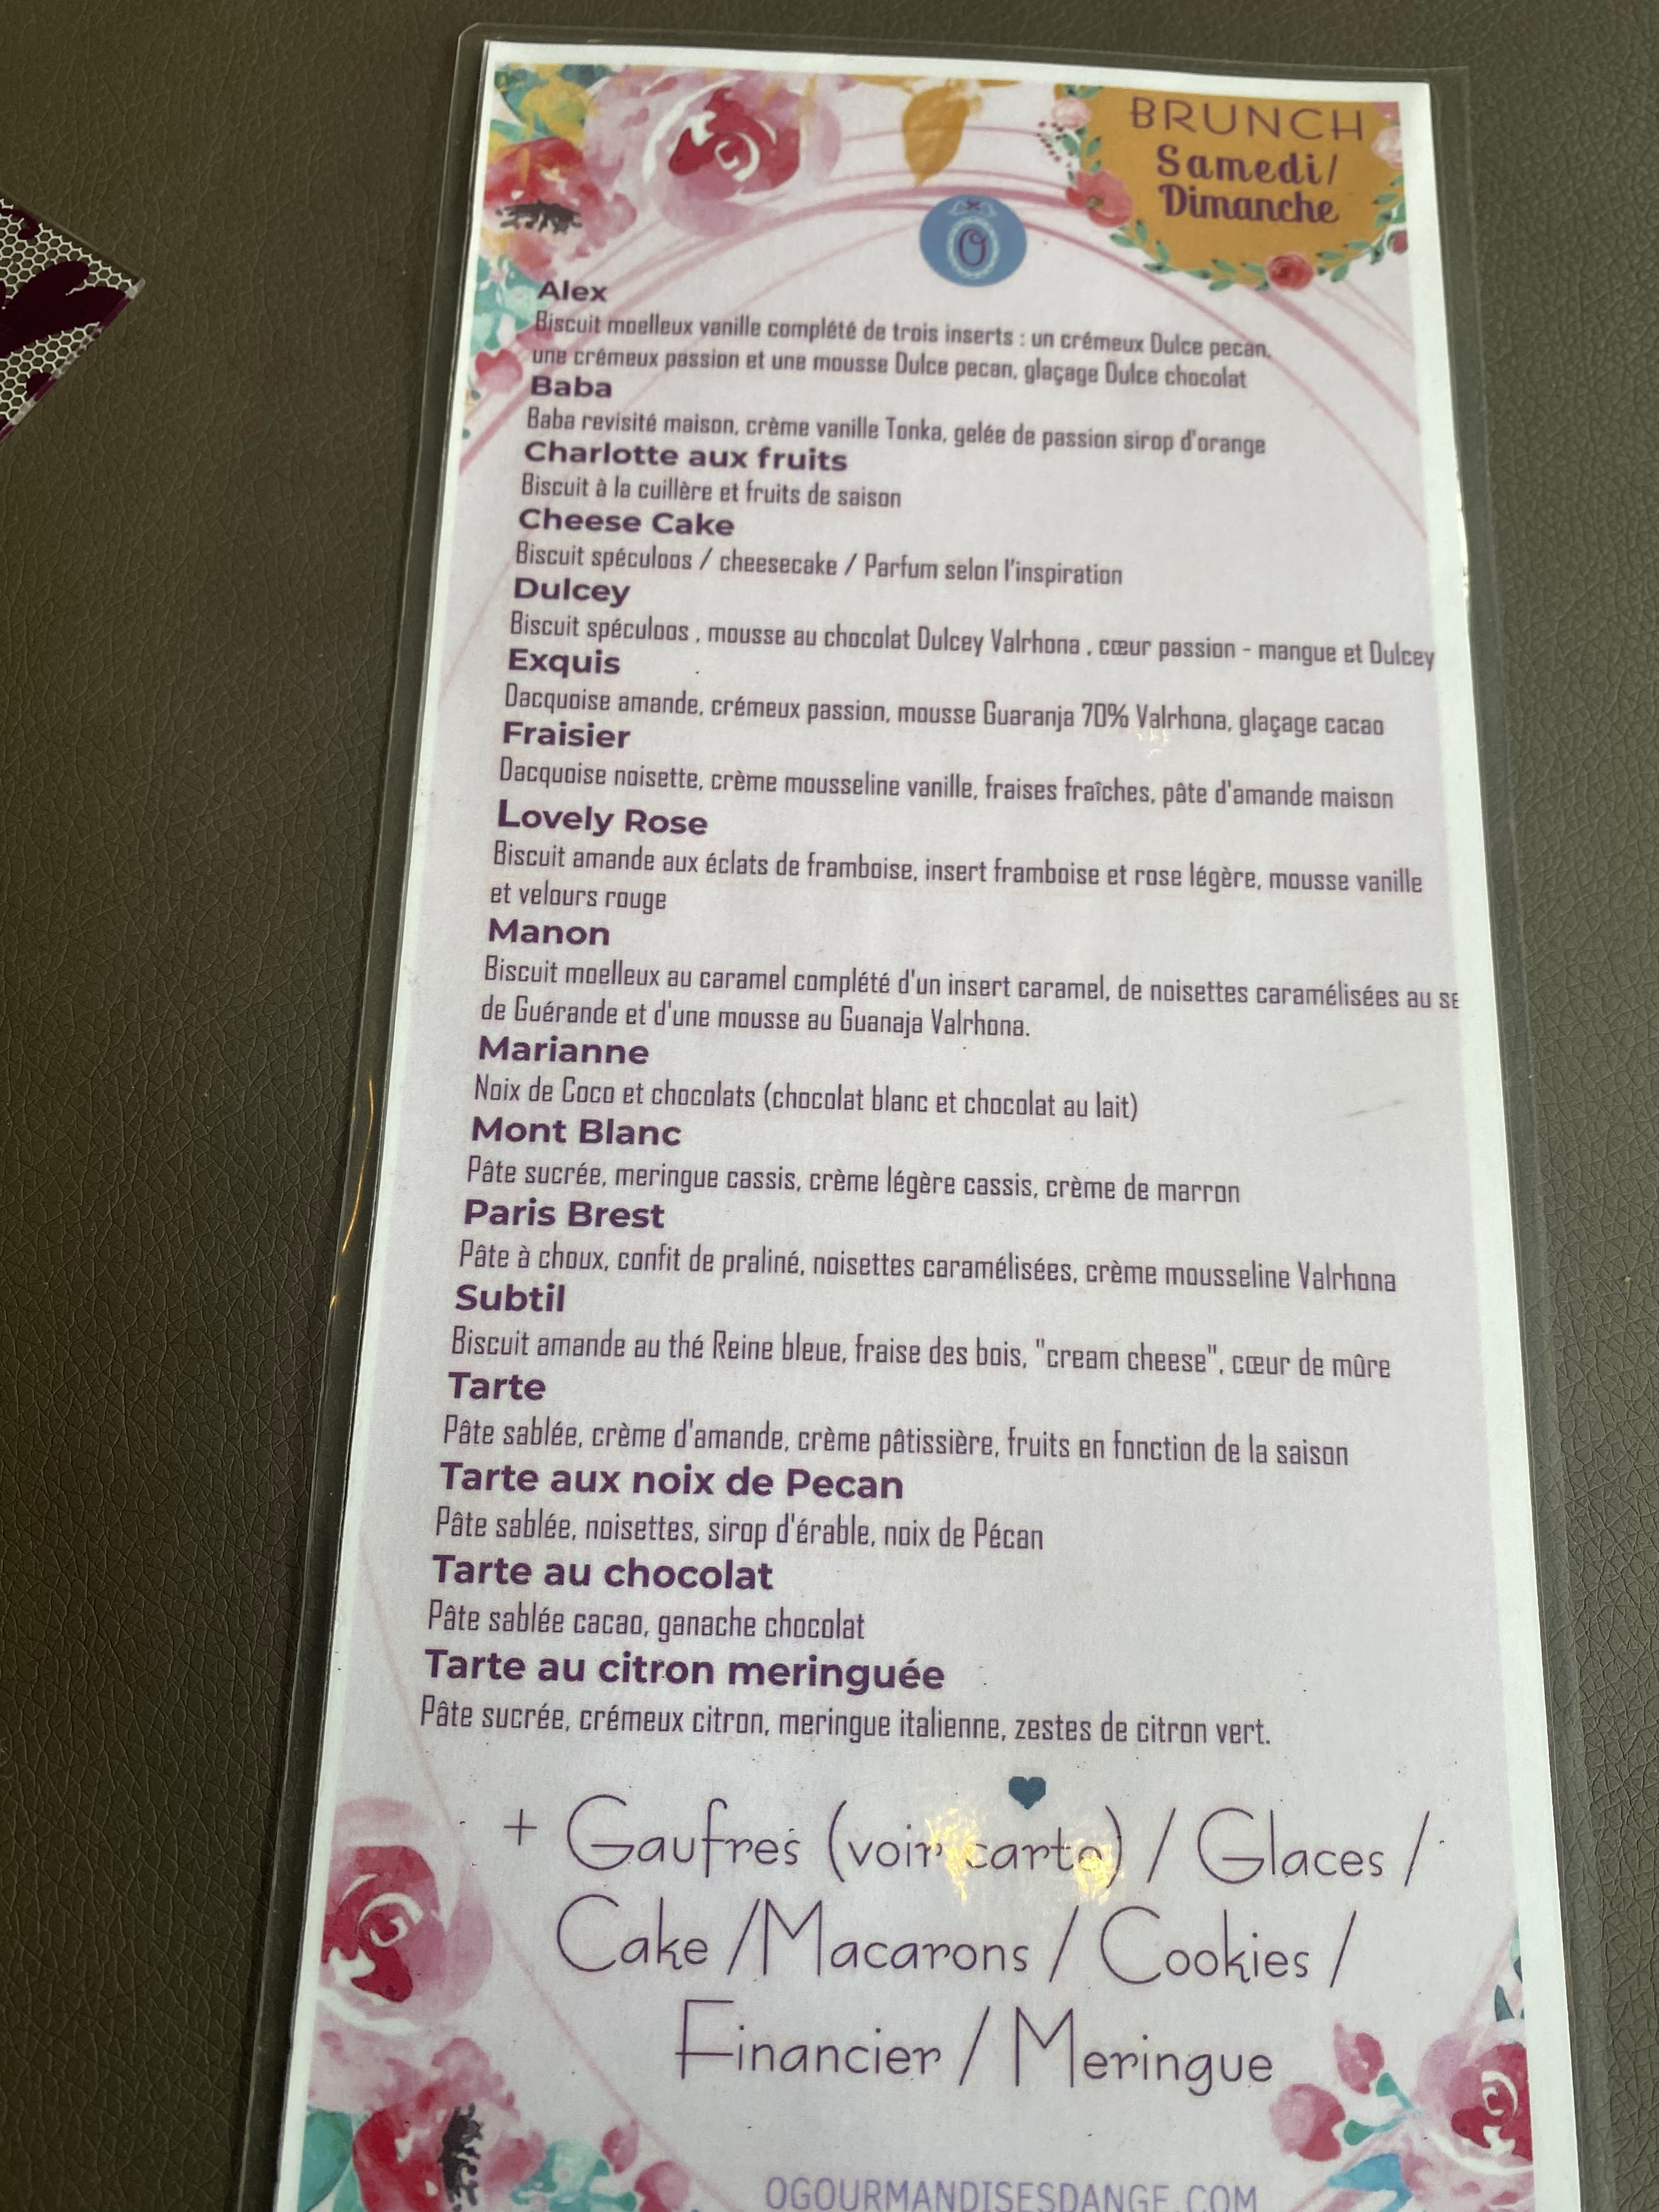 BRUNCH
Samedi/
Dimanche
O
Alex
Biscuit moelleux vanille complété de trois inserts : un crémeux Dulce pecan,
une crémeux passion et une mousse Dulce pecan, glaçage Dulce chocolat
Baba
Baba revisité maison, crème vanille Tonka, gelée de passion sirop d'orange
Charlotte aux fruits
Biscuit à la cuillère et fruits de saison
Cheese Cake
Biscuit spéculoos / cheesecake / Parfum selon l'inspiration
Dulcey
Biscuit spéculoos , mousse au chocolat Dulcey Valrhona , cœur passion - mangue et Dulcey
Exquis
Dacquoise amande, crémeux passion, mousse Guaranja 70% Valrhona, glaçage cacao
Fraisier
Dacquoise noisette, crème mousseline vanille, fraises fraîches, pâte d'amande maison
Lovely Rose
Biscuit amande aux éclats de framboise, insert framboise et rose légère, mousse vanille
et velours rouge
Manon
Biscuit moelleux au caramel complété d'un insert caramel, de noisettes caramélisées au se
de Guérande et d'une mousse au Guanaja Valrhona.
Marianne
Noix de Coco et chocolats (chocolat blanc et chocolat au lait)
Mont Blanc
Pâte sucrée, meringue cassis, crème légère cassis, crème de marron
Paris Brest
Pâte à choux, confit de praliné, noisettes caramélisées, crème mousseline Valrhona
Subtil
Biscuit amande au thé Reine bleue, fraise des bois, "cream cheese", cœur de mûre
Tarte
Pâte sablée, crème d'amande, crème pâtissière, fruits en fonction de la saison
Tarte aux noix de Pecan
Pâte sablée, noisettes, sirop d'érable, noix de Pécan
Tarte au chocolat
Pâte sablée cacao, ganache chocolat
Tarte au citron meringuée
Pâte sucrée, crémeux citron, meringue italienne, zestes de citron vert.
+ Gaufres (voir carte) / Glaces /
Cake /Macarons / Cookies /
Financier / Meringue
OGOURMANDISESDANGE.COM